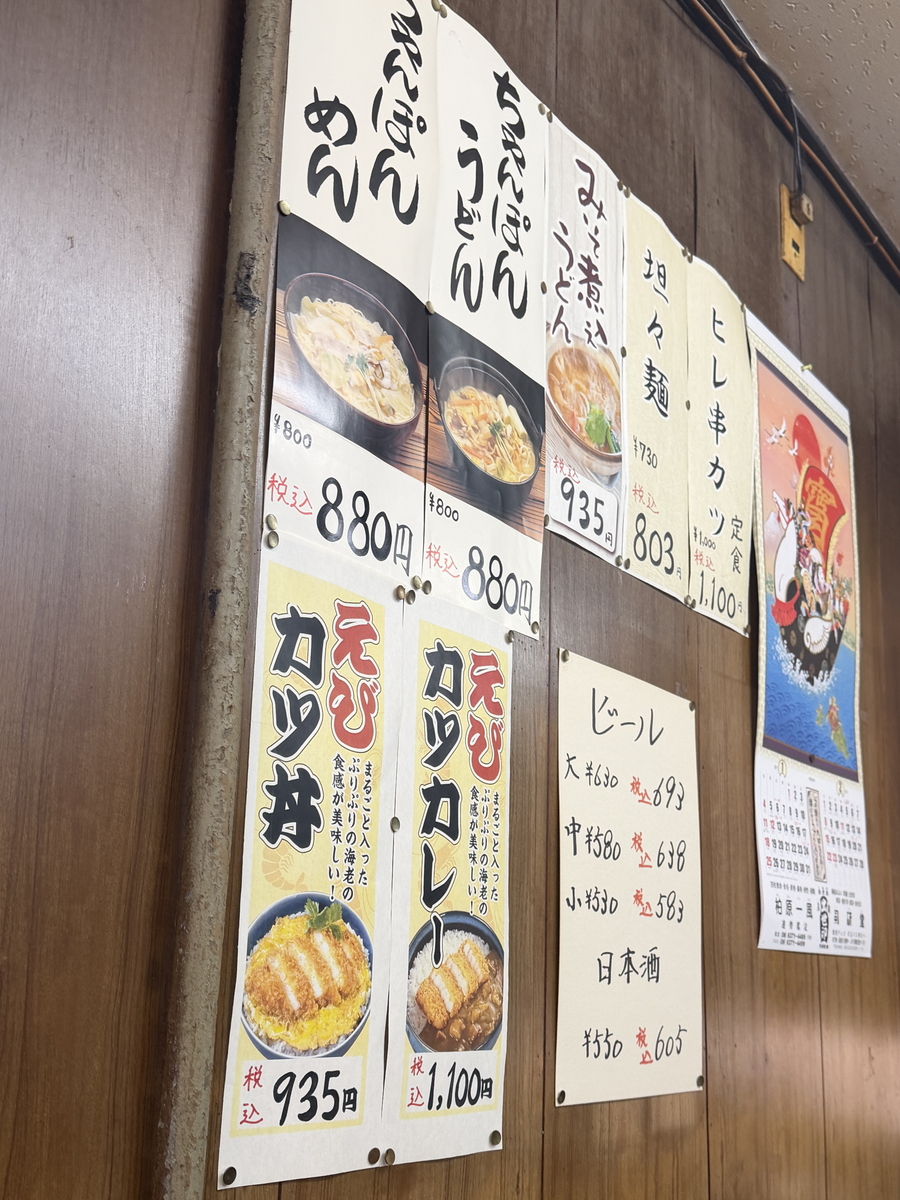 ちゃんぽん
めん
¥800
税込
880円
ちゃんぽん
うどん
¥800
税込
880円
みそ煮込
うどん
税込
935円
坦々麺
¥730
税込
803円
ヒレ串カツ
定食
¥1,000
税込
1,100円
えび
カツ丼
まるごと入った
ぷりぷりの海老の
食感が美味しい!
税込
935円
えび
カツカレー
まるごと入った
ぷりぷりの海老の
食感が美味しい!
税込
1,100円
ビール
大 ¥630 税込 693
中 ¥580 税込 638
小 ¥530 税込 583
日本酒
¥550 税込 605
寶
1
柏原一風